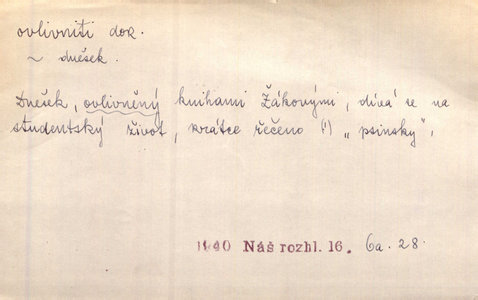 ovlivniti dok.
~ dnešek.
Dnešek, ovlivněný knihami Žákovými, dívá se na
studentský život, krátce řečeno (!) „psinsky",
1940 Náš rozhl. 16. 6a. 28.